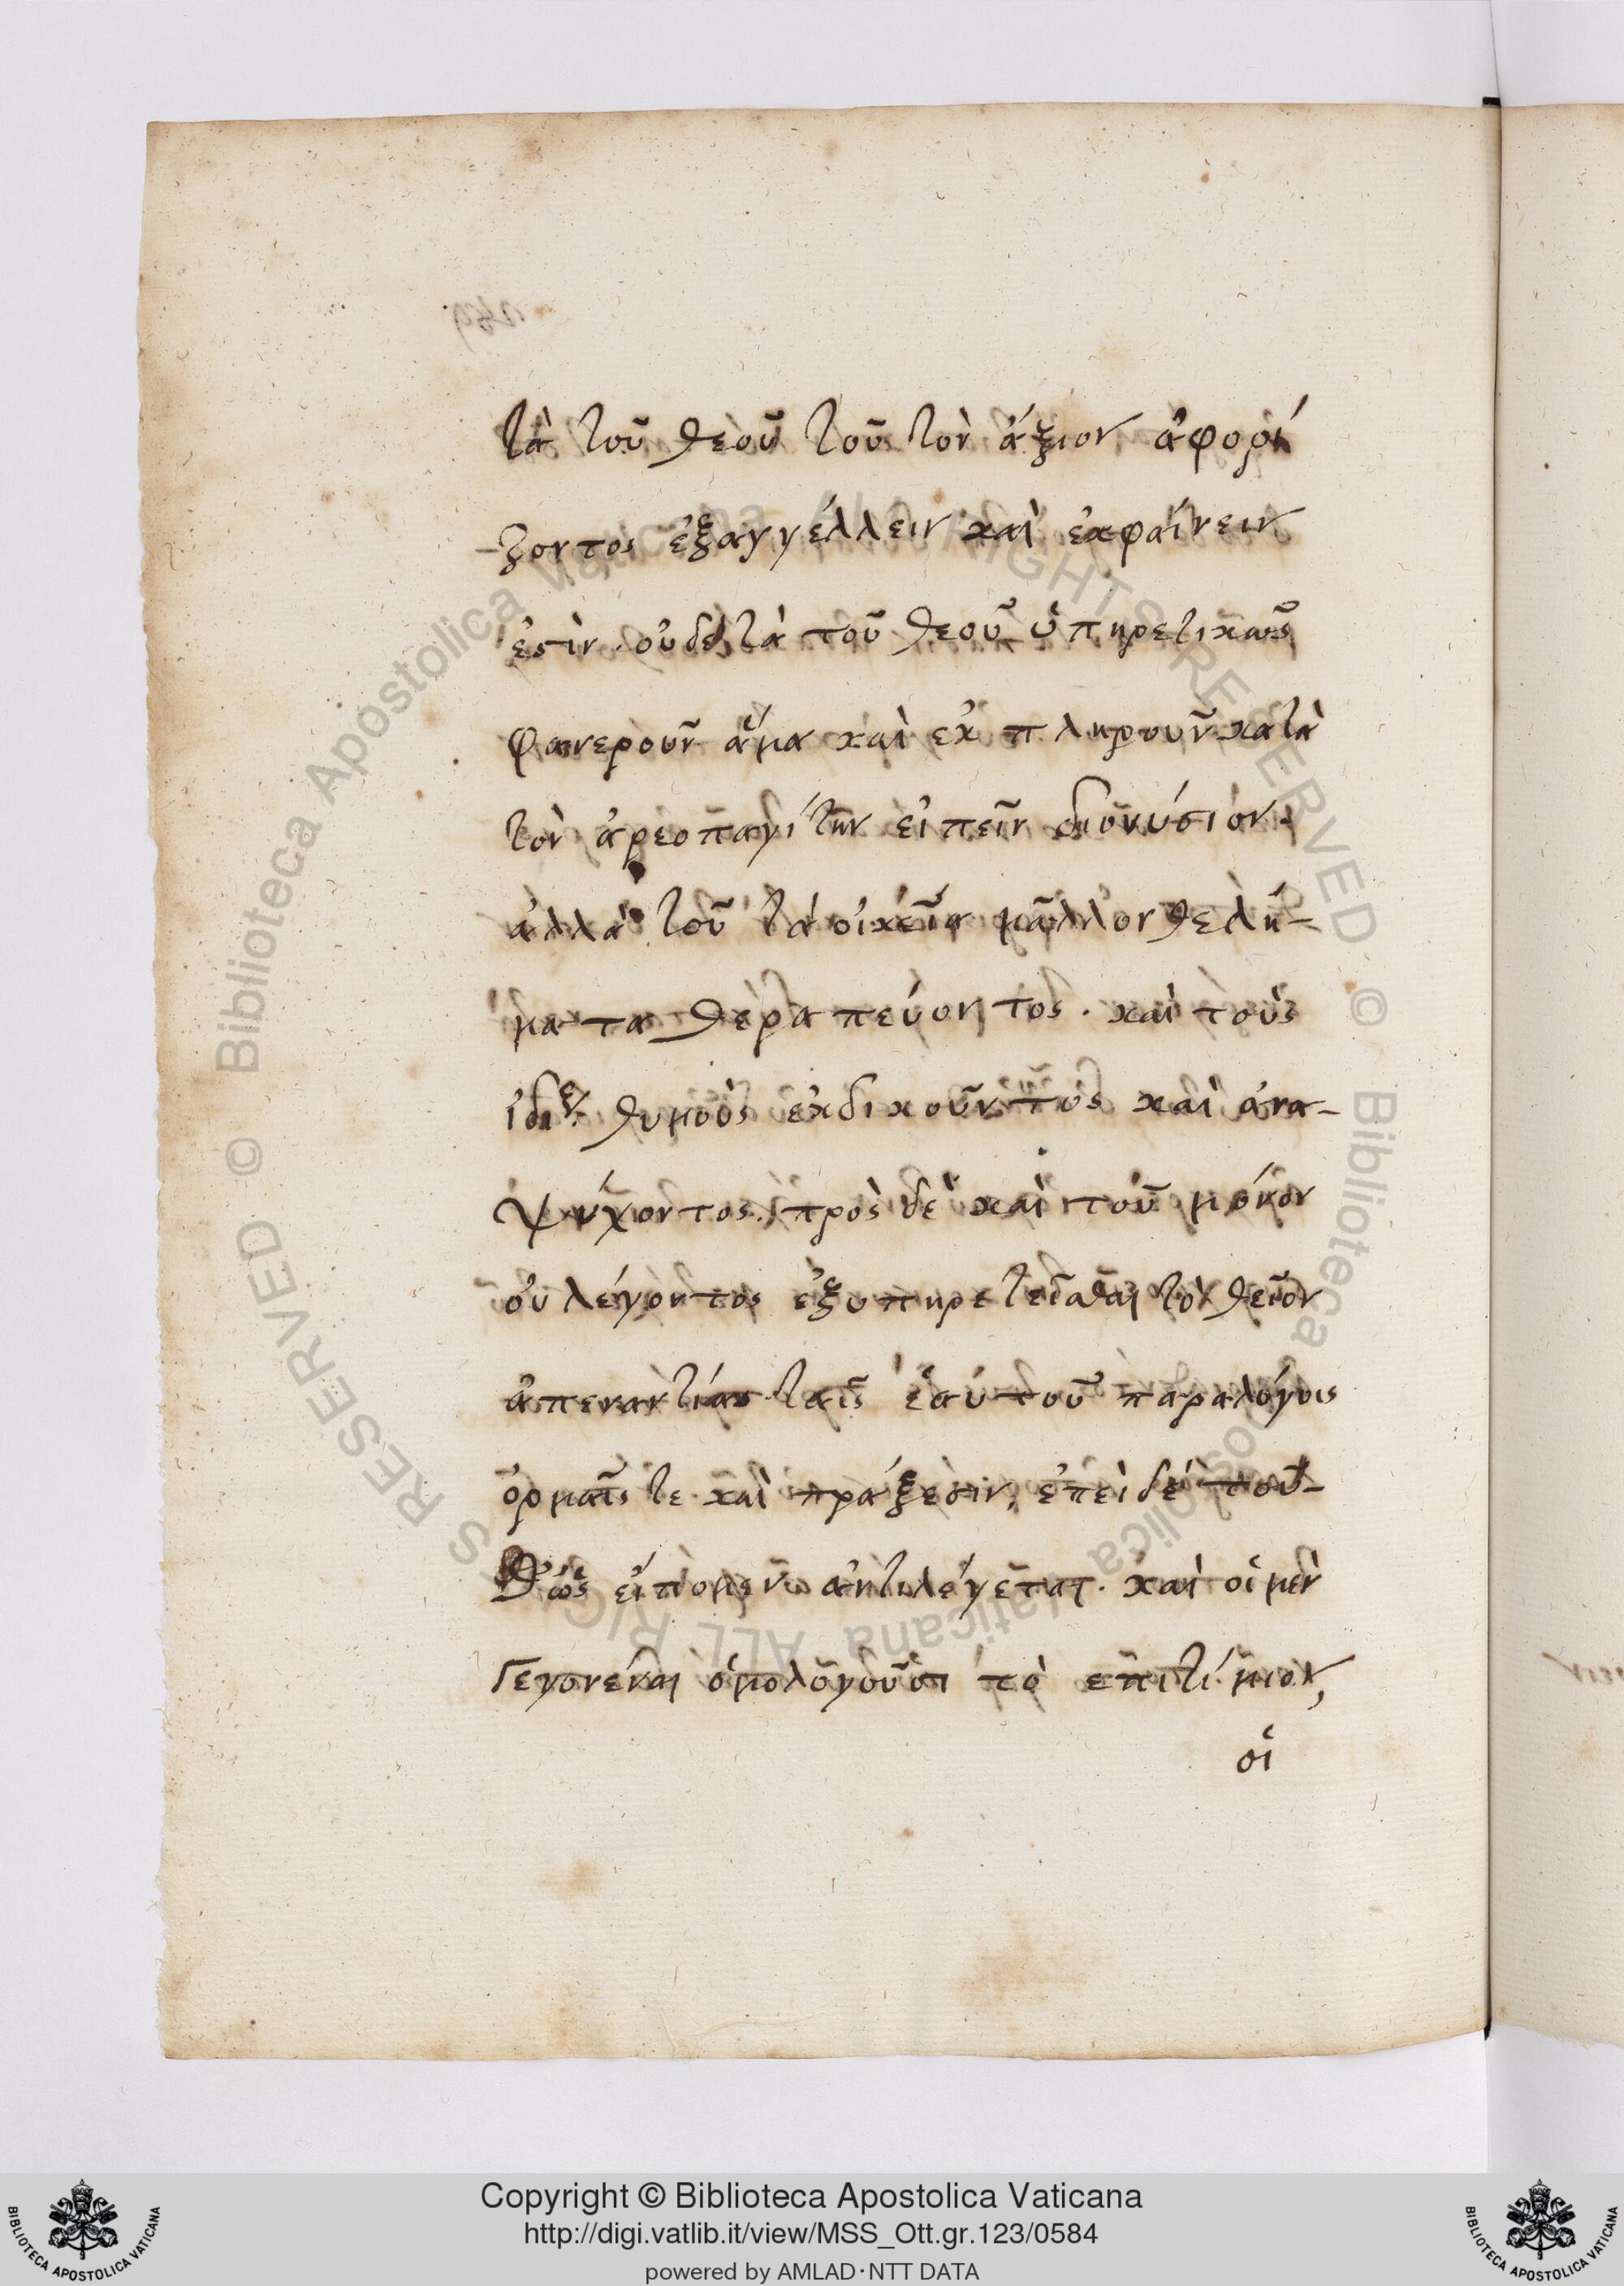 τὰ τοῦ θεοῦ τοῦ τὸν ἄξιον ἀφορί
-ζοντος ἐξαγγέλλειν καὶ ἐκφαίνειν
ἐστὶν. οὐδὲ τὰ τοῦ θεοῦ ὑπηρετικῶς
φανεροῦν ἅμα καὶ ἐκπληροῦν κατὰ
τὸν ἀρεοπαγίτην εἰπεῖν διονύσιον.
ἀλλὰ τοῦ τὰ οἰκεῖα μᾶλλον θελή-
ματα θεραπεύοντος. καὶ τοὺς
θυμοὺς ἐκδικοῦντος καὶ ἀνα-
ψύχοντος. πρὸς δὲ καὶ τοῦ μόνον
οὐ λέγοντος ἐξυπηρετεῖσθαι τὸ θεῖον
ἀπεναντίας ταῖς ἑαυτοῦ παραλόγοις
ὁρμαῖς τε καὶ πράξεσιν, ἐπεὶ δὲ τοῦ-
εἰπομένω ἀντιλέγεται. καὶ οἱ μὲν
Γεγονέναι ὁμολογοῦσι τὸ ἐπιτίμιον,
οἱ
Copyright © Biblioteca Apostolica Vaticana
http://digi.vatlib.it/view/MSS_Ott.gr.123/0584
powered by AMLAD·NTT DATA
BIBLIOTECA APOSTOLICA VATICANA
BIBLIOTECA APOSTOLICA VATICANA
© Biblioteca Apostolica Vaticana ALL RIGHTS RESERVED
© Biblioteca Apostolica Vaticana ALL RIGHTS RESERVED